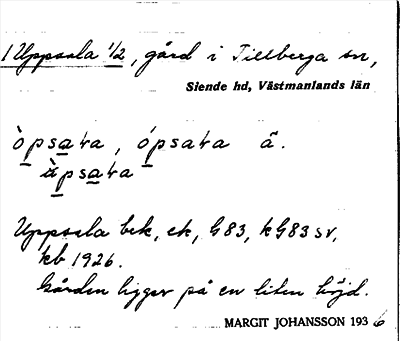 1 Uppsala 1/2, gård i Tillberga sn,
Siende hd, Västmanlands län
òpsaɫa, ópsaɫa ä.
àpsaɫa
Uppsala bek, ek, G83, kG83 sv,
kb 1926.
Gården ligger på en liten höjd.
MARGIT JOHANSSON 1936